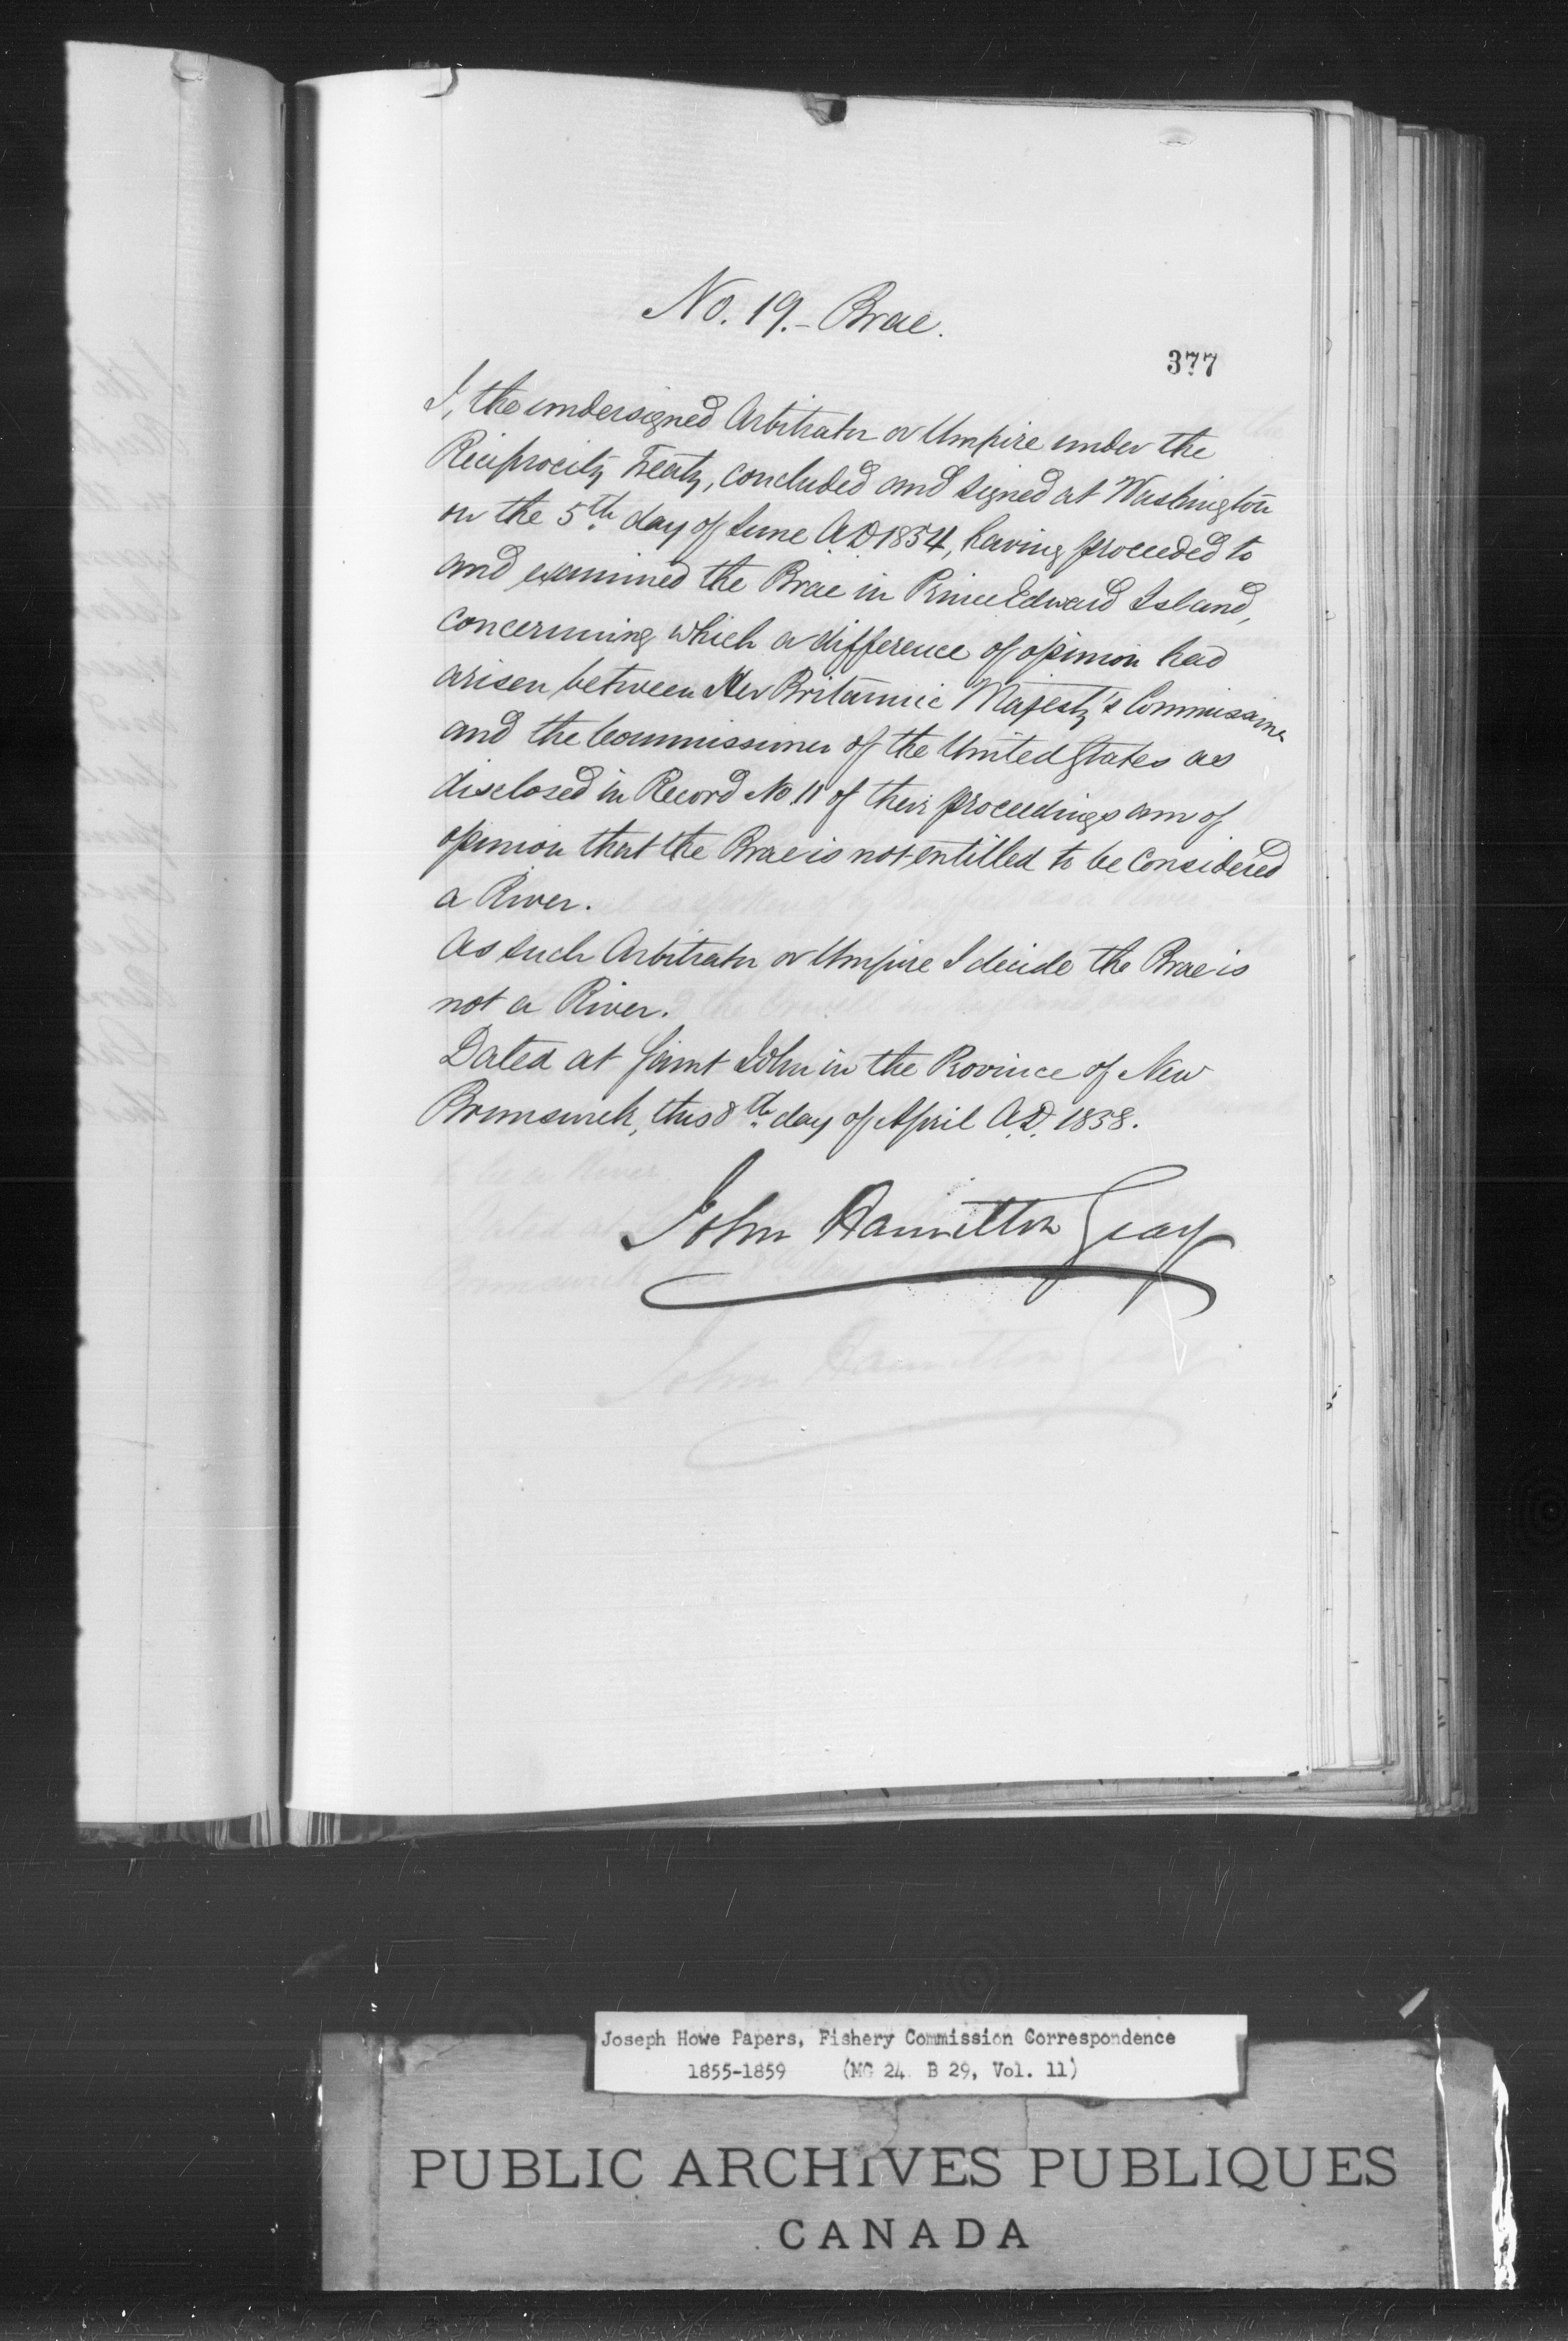 No. 19.- Brae.
377
I, the undersigned Arbitrator or Umpire under the
Reciprocity Treaty, concluded and signed at Washington
on the 5th day of June A.D 1854, having proceeded to
and examined the Brae in Prince Edward Island,
concerning which a difference of opinion had
arisen between Her Britannic Majesty's Commissioner
and the Commissioner of the United States as
disclosed in Record No. 11 of their proceedings am of
opinion that the Brae is not entitled to be considered
a River.
As such Arbitrator or Umpire I decide the Brae is
not a River.
Dated at Saint John in the Province of New
Brunswick, this 8th day of April A.D. 1858.
John Hamilton Gray
Joseph Howe Papers, Fishery Commission Correspondence
1855-1859 (MG 24 B 29, Vol. 11)
PUBLIC ARCHIVES PUBLIQUES
CANADA